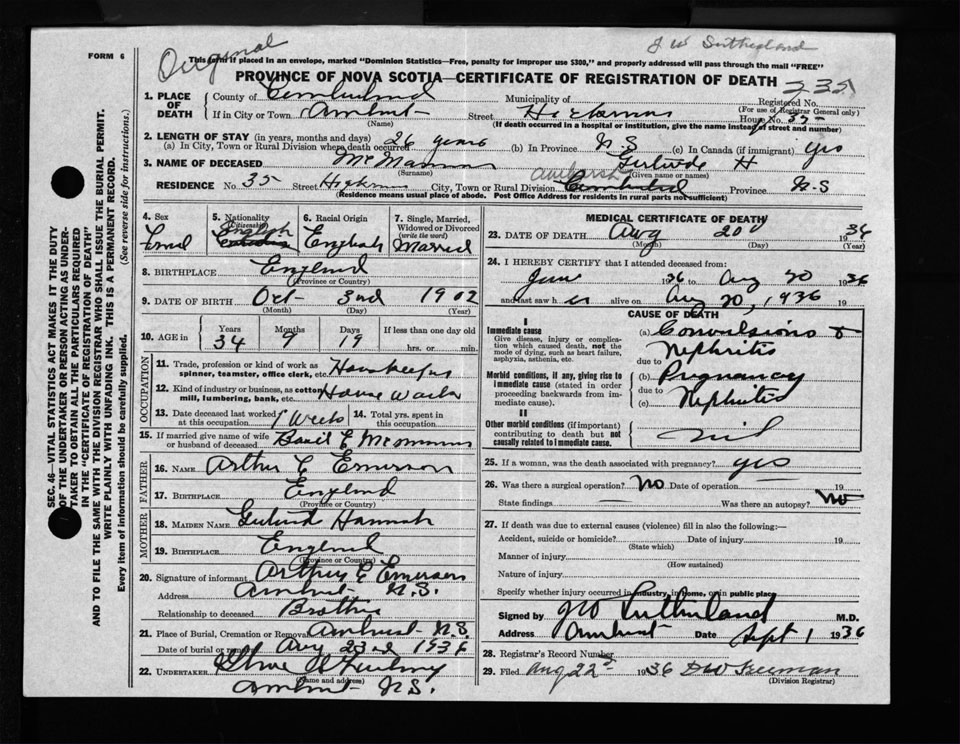 FORM 6
Original
J W Sutherland
This form if placed in an envelope, marked "Dominion Statistics—Free, penalty for improper use $300," and properly addressed will pass through the mail "FREE"
PROVINCE OF NOVA SCOTIA—CERTIFICATE OF REGISTRATION OF DEATH
1. PLACE OF DEATH
County of Cumberland Municipality of Registered No.
(For use of Registrar General only)
If in City or Town Amherst Street House No. 35
(Name) (If death occurred in a hospital or institution, give the name instead of street and number)
2. LENGTH OF STAY (in years, months and days)
(a) In City, Town or Rural Division where death occurred 26 years (b) In Province N.S (c) In Canada (if immigrant) yes
3. NAME OF DECEASED Gertrude H
(Surname) (Given name or names)
RESIDENCE No. 35 Street City, Town or Rural Division Amherst Cumberland Province N.S
(Residence means usual place of abode. Post Office Address for residents in rural parts not sufficient)
4. Sex
5. Nationality (Citizenship) English
6. Racial Origin English
7. Single, Married, Widowed or Divorced (write the word) Married
8. BIRTHPLACE England
(Province or Country)
9. DATE OF BIRTH Oct 3rd 1902
(Month) (Day) (Year)
10. AGE in Years Months Days If less than one day old
34 9 19 hrs. or min.
OCCUPATION
11. Trade, profession or kind of work as spinner, teamster, office clerk, etc. Housekeeper
12. Kind of industry or business, as cotton mill, lumbering, bank, etc. House Work
13. Date deceased last worked at this occupation Weeks 14. Total yrs. spent in this occupation
15. If married give name of wife or husband of deceased
FATHER
16. NAME Arthur E Emerson
17. BIRTHPLACE England
(Province or Country)
MOTHER
18. MAIDEN NAME Hannah
19. BIRTHPLACE England
(Province or Country)
20. Signature of informant Arthur E Emerson
Address Amherst N.S.
Relationship to deceased Brother
21. Place of Burial, Cremation or Removal Amherst N.S.
Date of burial or removal Aug 23rd 1936
22. UNDERTAKER
(Name and address)
Amherst N.S.
MEDICAL CERTIFICATE OF DEATH
23. DATE OF DEATH Aug 20 1936
(Month) (Day) (Year)
24. I HEREBY CERTIFY that I attended deceased from:
June 1936 to Aug 20 1936
and last saw her alive on Aug 20, 1936 19
CAUSE OF DEATH
I
Immediate cause
Give disease, injury or complication which caused death, not the mode of dying, such as heart failure, asphyxia, asthenia, etc.
(a) Convulsions &
Nephritis
due to
Morbid conditions, if any, giving rise to immediate cause (stated in order proceeding backwards from immediate cause).
(b) Pregnancy
due to Nephritis
(c)
II
Other morbid conditions (if important) contributing to death but not causally related to immediate cause.
nil
25. If a woman, was the death associated with pregnancy? yes
26. Was there a surgical operation? No Date of operation 19
State findings Was there an autopsy? No
27. If death was due to external causes (violence) fill in also the following:—
Accident, suicide or homicide? Date of injury 19
(State which)
Manner of injury
(How sustained)
Nature of injury
Specify whether injury occurred in industry, in home, or in public place
Signed by JW Sutherland M.D.
Address Amherst Date Sept 1 1936
28. Registrar's Record Number
29. Filed Aug 22 1936 Freeman
(Division Registrar)
SEC. 46—VITAL STATISTICS ACT MAKES IT THE DUTY
OF THE UNDERTAKER OR PERSON ACTING AS UNDERTAKER TO OBTAIN ALL THE PARTICULARS REQUIRED
IN THE "CERTIFICATE OF REGISTRATION OF DEATH"
AND TO FILE THE SAME WITH THE DIVISION REGISTRAR WHO SHALL ISSUE THE BURIAL PERMIT.
WRITE PLAINLY WITH UNFADING INK. THIS IS A PERMANENT RECORD.
Every item of information should be carefully supplied. (See reverse side for instructions.)